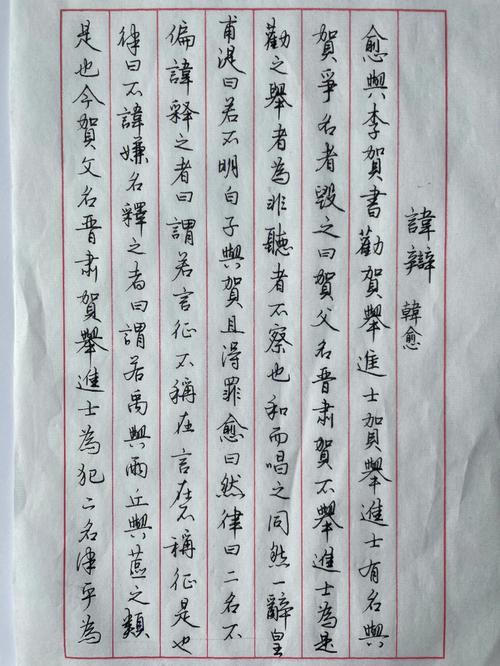 諱辯 韓愈
愈與李賀書勸賀舉進士賀舉進士有名與
賀爭名者毀之曰賀父名晋肃賀不舉進士為是
勸之舉者為非聽者不察也和而唱之同然一辭皇
甫湜曰若不明白子與賀且得罪愈曰然律曰二名不
偏諱释之者曰謂若言征不稱在言在不稱征是也
律曰不諱嫌名釋之者曰謂若禹與雨丘與蓲之類
是也今賀父名晋肃賀舉進士為犯二名律乎為